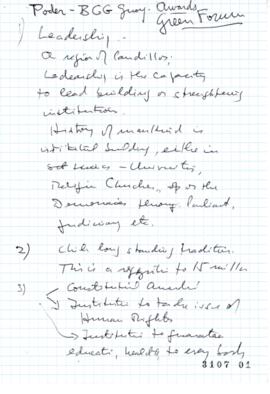 Poder - BCG Awards
Green Forum
1) Leadership.
A region of Caudillos;
Leadership is the capacity
to lead building or strengthening
institutions.
History of mankind is
institutional building, either in
Religion Churches, or the
Democracies Parliament,
judiciary etc.
2) Chile long standing tradition.
This is a to 15 million
3) Constitutional
Institution to take issue of
Human Rights
Institution to guarantee
education, health, to every body
3107 01